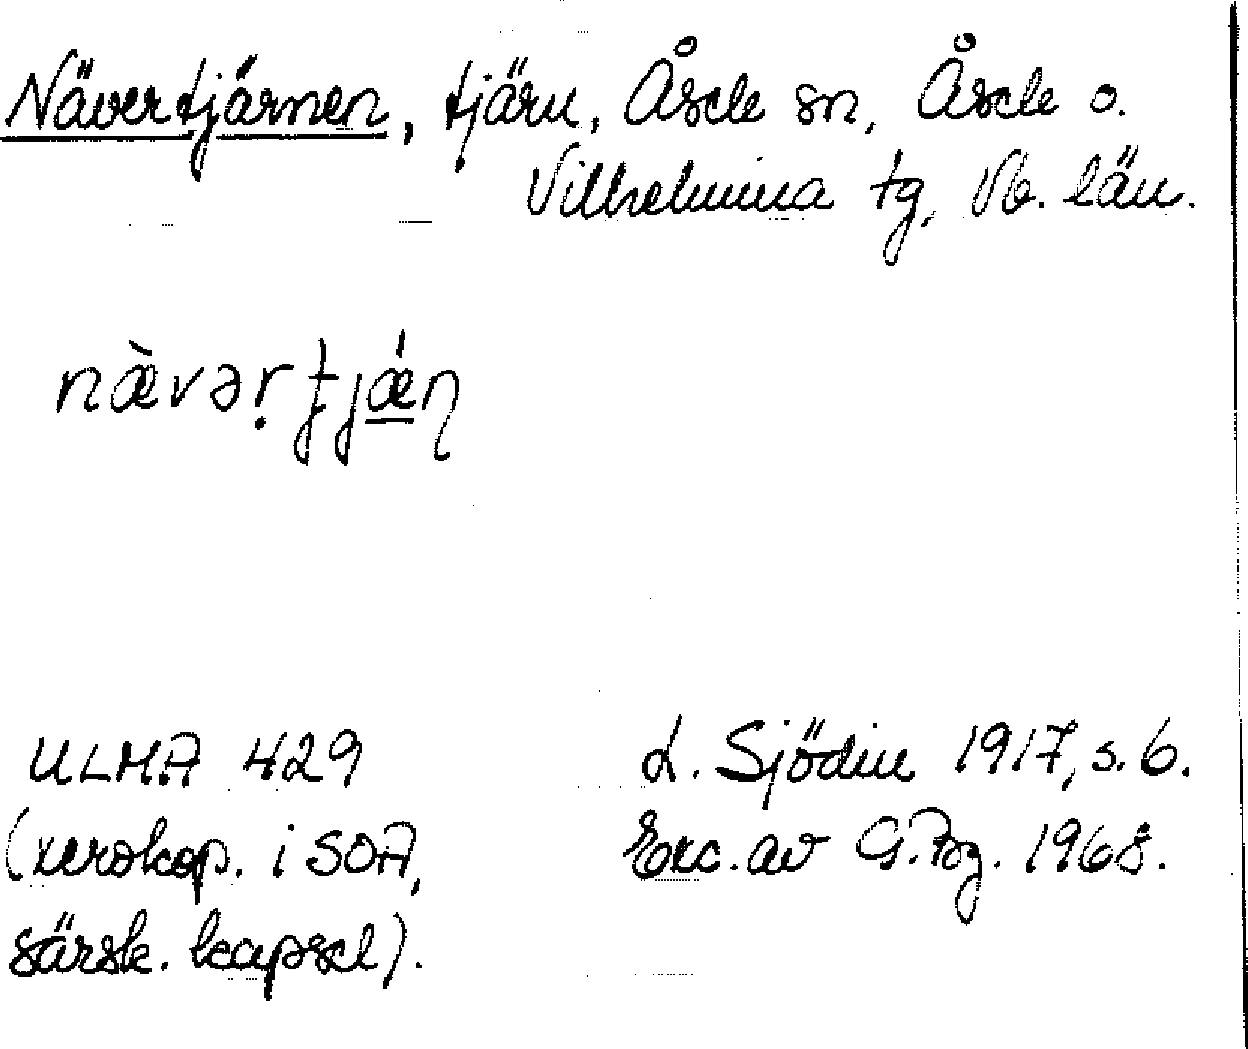 Nävertjärnen, tjärn, Åsele sn, Åsele o.
Vilhelmina tg, Vb. län.
nævərtjæn
ULMA 429
(xerokop. i SOA,
särsk. kapsel).
L. Sjödin 1917, s. 6.
Exc. av G. 1968.